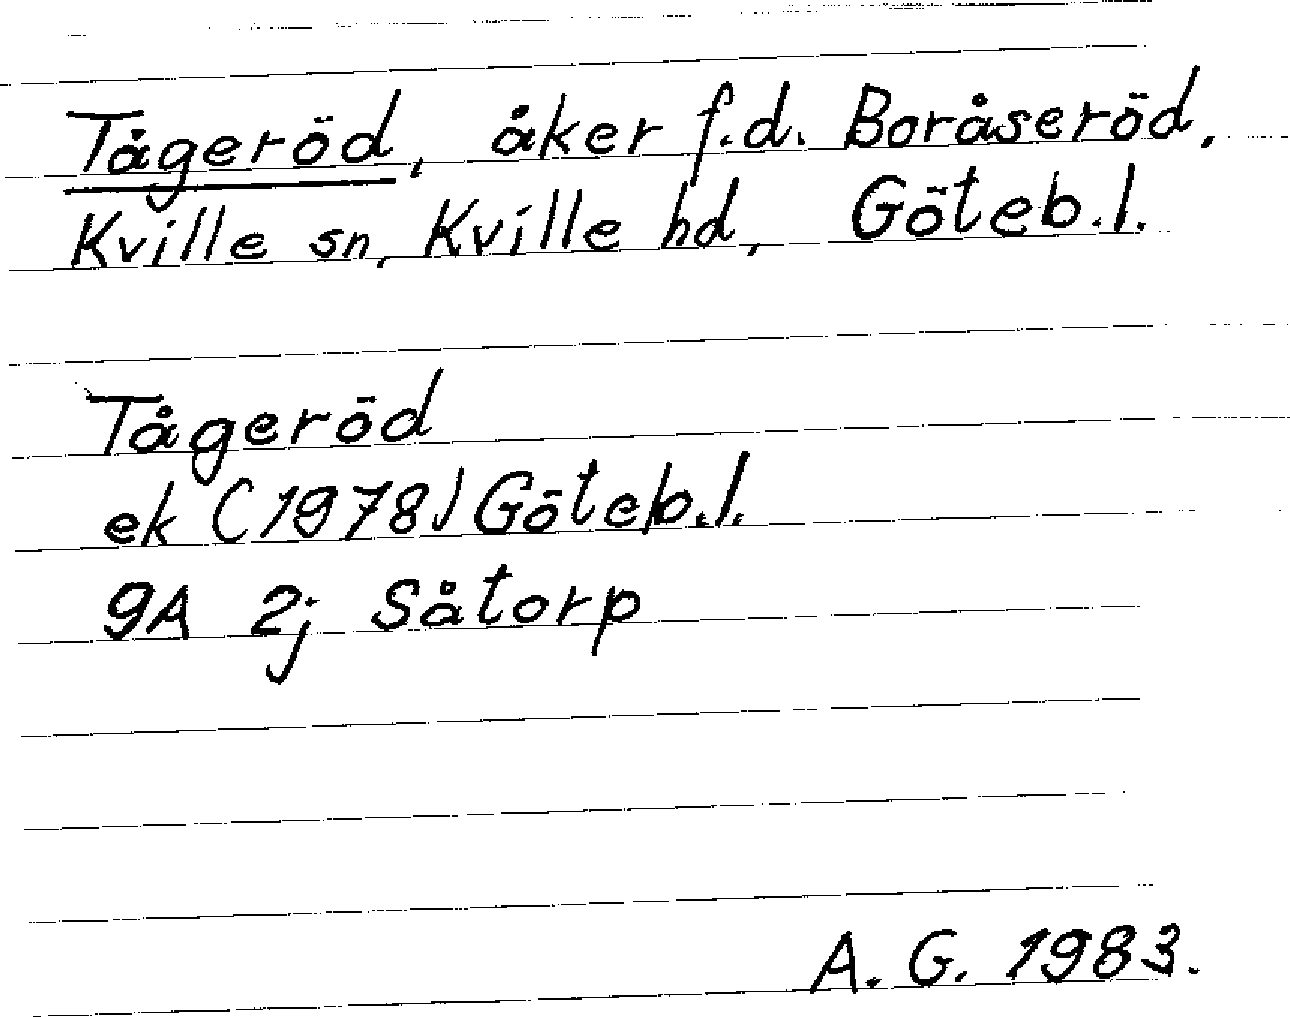 Tågeröd, åker f.d. Boråseröd,
Kville sn, Kville hd, Göteb.l.
Tågeröd
ek (1978) Göteb.l.
9A 2j Såtorp
A. G. 1983.